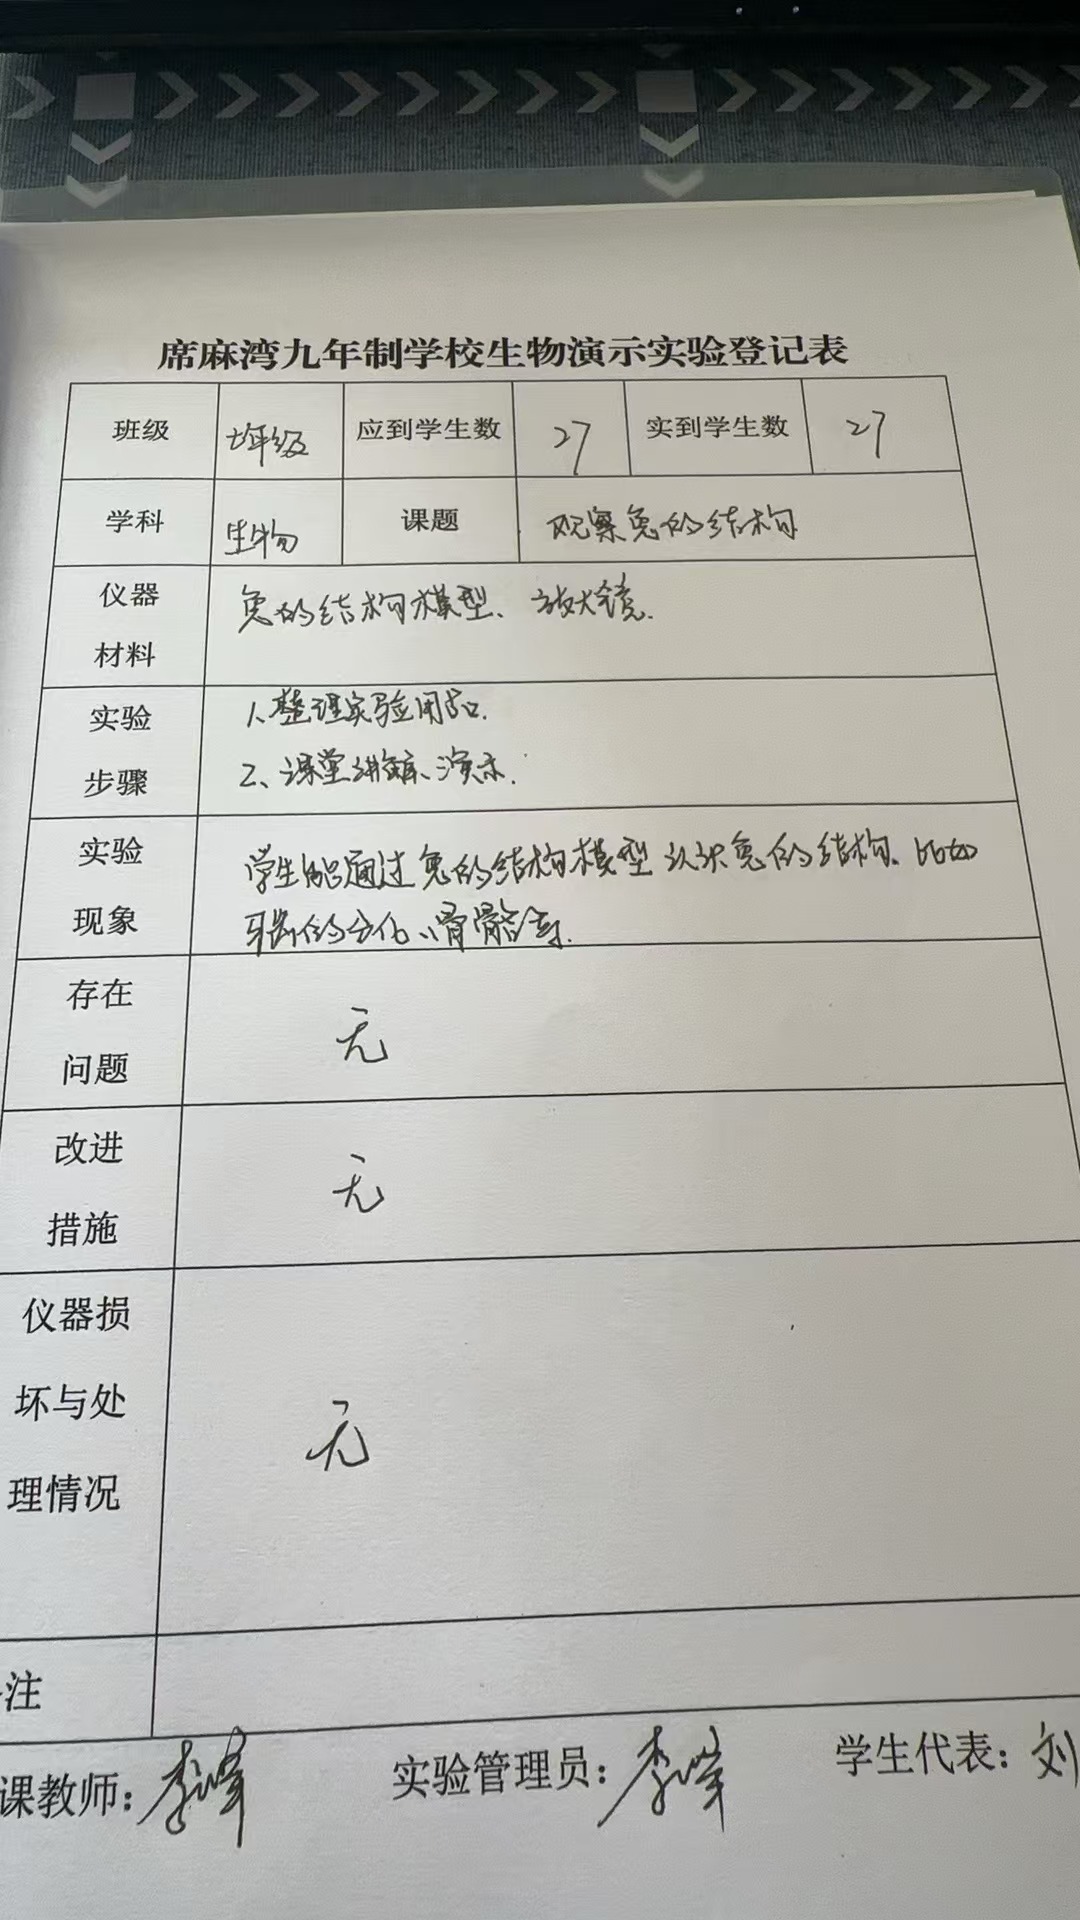 席麻湾九年制学校生物演示实验登记表
班级 七年级 应到学生数 27 实到学生数 27
学科 生物 课题 观察兔的结构
仪器
材料
兔的结构模型、放大镜.
实验
步骤
1、整理实验用品.
2、课堂讲解、演示.
实验
现象
学生能通过兔的结构模型认识兔的结构、比如
牙齿的分化、骨骼等.
存在
问题
无
改进
措施
无
仪器损
坏与处
理情况
无
注
课教师：李峰 实验管理员：李峰 学生代表：刘